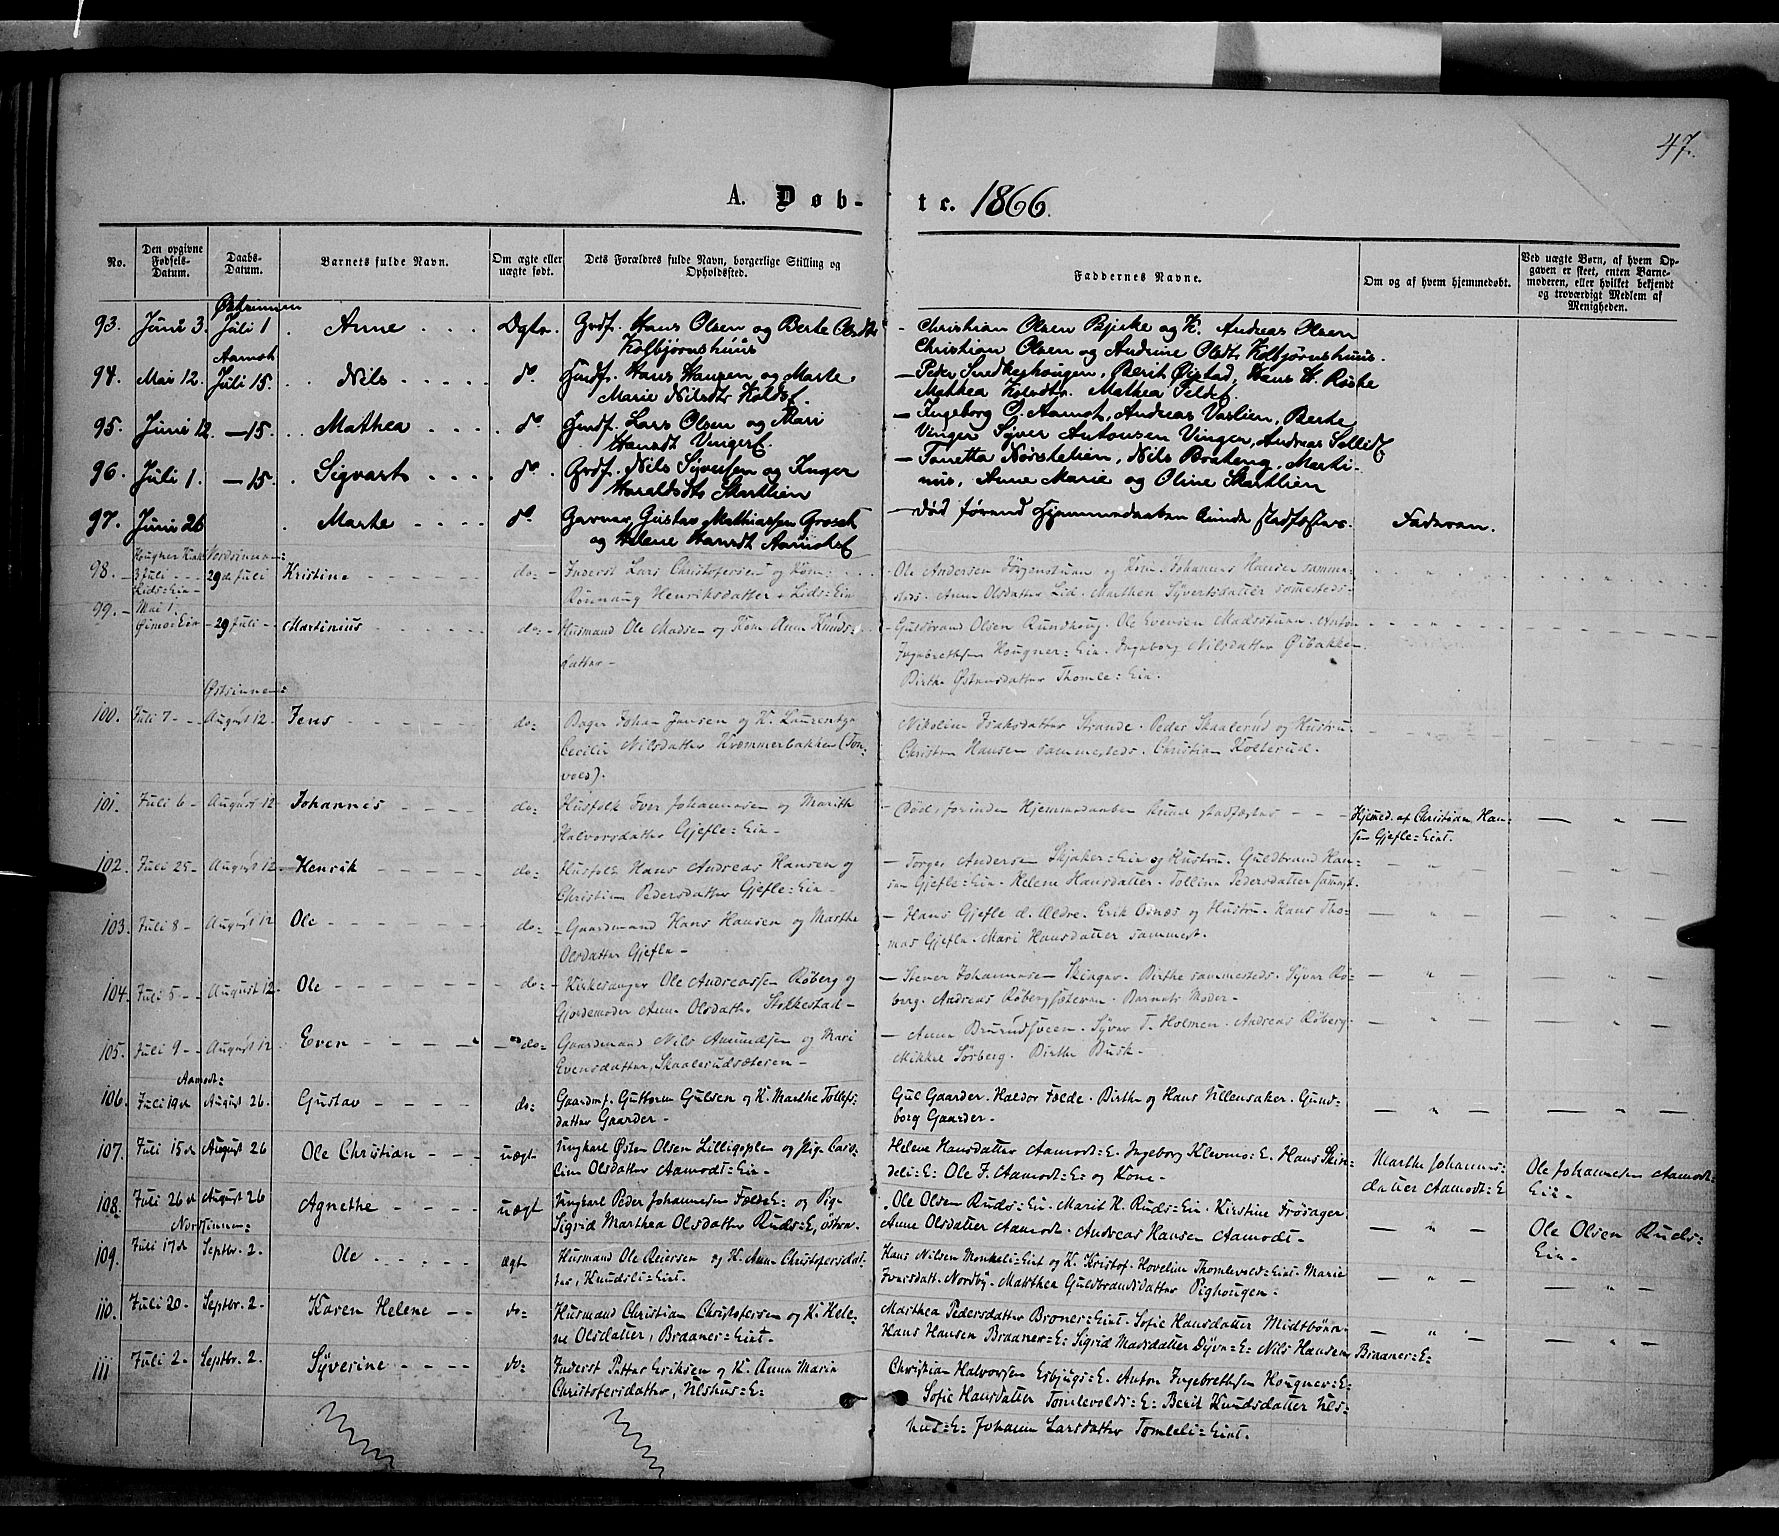 47.
A. Døb-
te. 1866.
No.
Den opgivne Fødsels-Datum.
Daabs-Datum.
Barnets fulde Navn.
Om ægte eller uægte født.
Dets Forældres fulde Navn, borgerlige Stilling og Opholdssted.
Faddernes Navne.
Om og af hvem hjemmedøbt.
Ved uægte Børn, af hvem Opgaven er skeet, enten Barnemoderen, eller hvilket bekjendt og troværdigt Medlem af Menigheden.
Østsinnen
93. Juni 3. Juli 1 Anne Gdf. Hans Olsen og Berte
Kolbjørnshuus
Christian Olsen Bjerke og K. Andreas Olsen
Christian Olsen og Andrine Olsdtr Kolbjørnshuus.
Aamot
94. Mai 12. Juli 15. Nils do Hans Hansen og Marte
Marie Nilsdtr
Berit Øistad, Hans H.
Mathea
95. Juni 12. —15. Mathea do Lars Olsen og Mari
Hansdt
Ingeborg O. Aamot, Andreas Vaslien, Berte
Vinger Syver Antonsen Vinger, Andreas
96. Juli 1. —15. Sigvart do Grdf. Nils Syversen og Inger
Haraldsdtr Skartlien
Nils Brateng, Marti-
nus, Anne Marie og Oline Skartlien
97. Juni 26 Marte do Garver Gustav Mathiassen
og Helene Hansdt
død førend Hjemmedaaben kunde stadfæstes. Faderen.
Nordsinnen:
98. 3 Juli 29de Juli Kristine do= Inderst Lars Christofersen og Kone
Rønnaug Henriksdatter Lids=Eie
Ole Andersen Jørgenstuen og Kone. Johannes Hansen samme-
steds. Anne Olsdatter Lid. Marthea Syvertsdatter samesteds
99. Mai 1 29 Juli Martinius do= Husmand Ole Madsen og Kone Anne Knuds-
datter
Guldbrand Olsen Rundhoug. Ole Evensen Madsstuen. Anton
Ingebrethsen Hougner=Eie. Ingeborg Nilsdatter Øibakken
Birthe Østensdatter Thomle=Eie.
Østsinnen:
100. Juli 7 August 12. Jens do= Bager Johan Jansen og K. Laurentze
Cecilie Nilsdatter Kræmmerbakken (Ton-
vold).
Nikoline Isaksdatter Strande. Peder Skaalerud og Hustru
Christen Hansen sammesteds. Christian Kolterud.
101. Juli 6 August 12 Johannes do= Husfolk Iver Johannesen og Marith
Halvorsdatter Gjefle=Eie
Død, forinden Hjemmedaaben kund stadfæstes
Hjemed. af Christian Han-
sen Gjefle=Eiet.
102. Juli 25 August 12 Henrik do= Husfolk Hans Andreas Hansen og
Christine Pedersdatter Gjefle=Eie
Torger Andersen Skjaker=Eie og Hustru. Guldbrand Han-
sen Gjefle=Eie. Helene Hansdatter. Tolline Pedersdatter samest.
103. Juli 8 August 12 Ole do= Gaardmand Hans Hansen og Marthe
Olsdatter Gjefle
Hans Gjefle d. Ældre. Erik Osnæs og Hustru. Hans Tho-
mas Gjefle. Mari Hansdatter sammest.
104. Juli 5 August 12 Ole do= Kirkesanger Ole Andreassen Røberg og
Gjordemoder Anne Olsdatter Stokkestad
Stener Johannesen Skinger. Birthe sammesteds. Syver Rø-
berg. Andreas Røbergsæteren. Barnets Moder
105. Juli 9 August 12 Even do= Gaardmand Nils Amundsen og Mari
Evensdatter, Skaalerudsæteren
Anne Bruudsveen. Syver T. Holmen. Andreas Røberg
Mikkel Sørberg. Birthe Busk.
Aamodt:
106. Juli 19d. August 26. Gustav do= Gaardm. Guttorm Gulsen og K. Marthe Tollefs-
datter Gaarder
Gul Gaarder. Haldor Følde. Birthe og Hans Ullensaker. Gund-
borg Gaarder
107. Juli 15d August 26 Ole Christian uægt Ungkarl Østen Olsen og Pig. Caro-
line Olsdatter Aamodt=Eie
Helene Hansdatter Aamodt=E. Ingeborg Klevmo=E. Hans Skin-
deli=E: Ole J. Aamodt=E: og Kone
Marthe Johannes-
datter Aamodt=E
Ole Johannesen Aamodt=
Eie
108. Juli 26d August 26 Agnethe uægt Ungkarl Peder Johannesen og Pig.
Sigrid Marthea Olsdatter Ruds=E, østra
Ole Olsen Ruds=Eie. Marit H. Ruds=Eie. Kirstine Frøsager
Anne Olsdatter Aamodt. Andreas Hansen Aamodt
Ole Olsen Ruds=
Eie
Nordsinnen:
109. Juli 17d Septbr. 2. Ole ægt Husmand Ole Reiersen og K. Anne Christofersdat-
ter, Knudsli=Eiet.
Hans Nilsen Monkeli=Eiet og K. Kristof. Hovelien Thomlevold=Eiet. Marie
Iversdatt. Nordby. Matthea Guldbrandsdatter Pighougen
110. Juli 20 Septbr. 2 Karen Helene do= Husmand Christian Christofersen og K. Hele-
ne Olsdatter, Braaner=Eiet
Marthea Pedersdatter Broner=Eiet. Sofie Hansdatter Midtbøn.
Hans Hansen Braaner=E: Sigrid Madsdatter Dyvn=E: Nils Hansen Braaner=E:
111 Juli 2 Septbr. 2. Syverine do= Inderst Petter Eriksen og K. Anne Marie
Christofersdatter, Ulshus=E=
Christian Halvorsen Esbjugs=E. Anton Ingebrethsen Hougner=E=
Sofie Hansdatter Tomlevolds=E= Berit Knudsdatter Uls-
hus=E= Johanne Larsdatter Tomleli=Eiet.